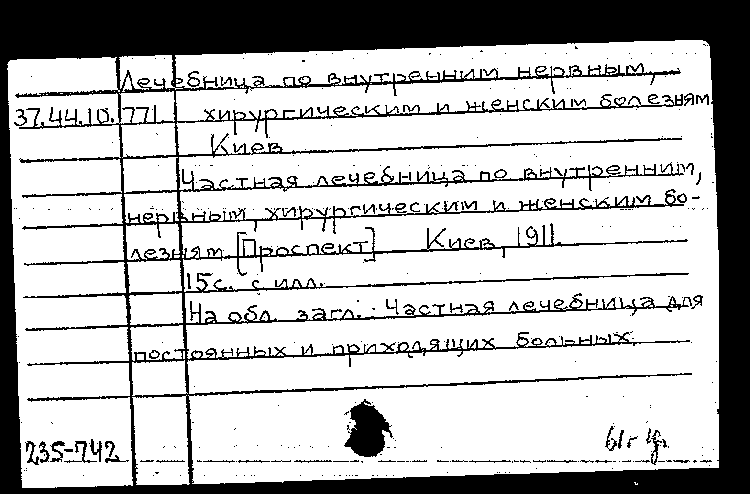 Лечебница по внутренним нервным,
37.44.10. 771. хирургическим и женским болезням
Киев
Частная лечебница по внутренним,
нервным, хирургическим и женским бо-
лезням. [Проспект] Киев, 1911.
15с. с илл.
На обл. загл.: Частная лечебница для
постоянных и приходящих больных.
235-742 61г